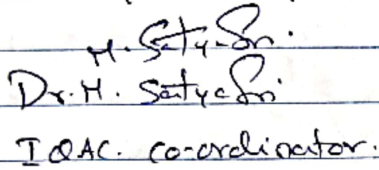 H. Satya Sri.
Dr. H. Satya Sri
IQAC. co-ordinator.